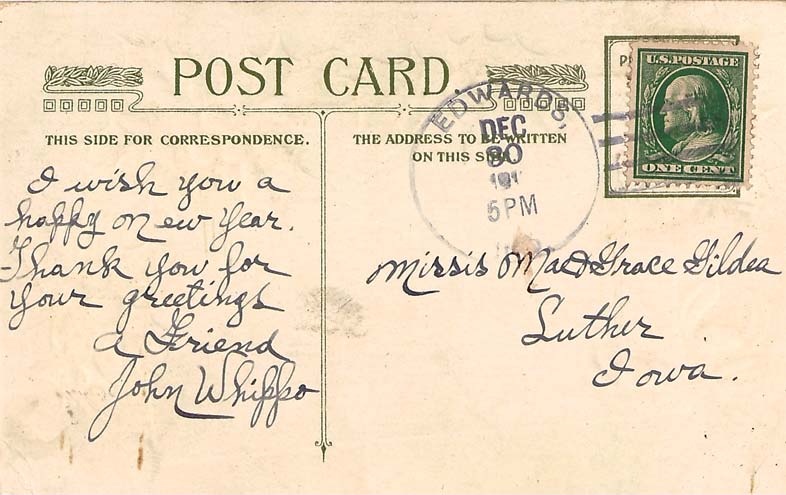 POST CARD.
THIS SIDE FOR CORRESPONDENCE.
THE ADDRESS TO BE WRITTEN
ON THIS SIDE.
EDWARDS,
DEC
30
191
5 PM
U.S. POSTAGE
ONE CENT
I wish you a
happy on new year.
Thank you for
your greetings
a Friend
John Whippo
Missis Mae & Grace Gildea
Luther
Iowa.